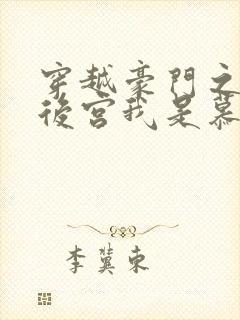 穿越豪門之
後宮我是慕
李冀東